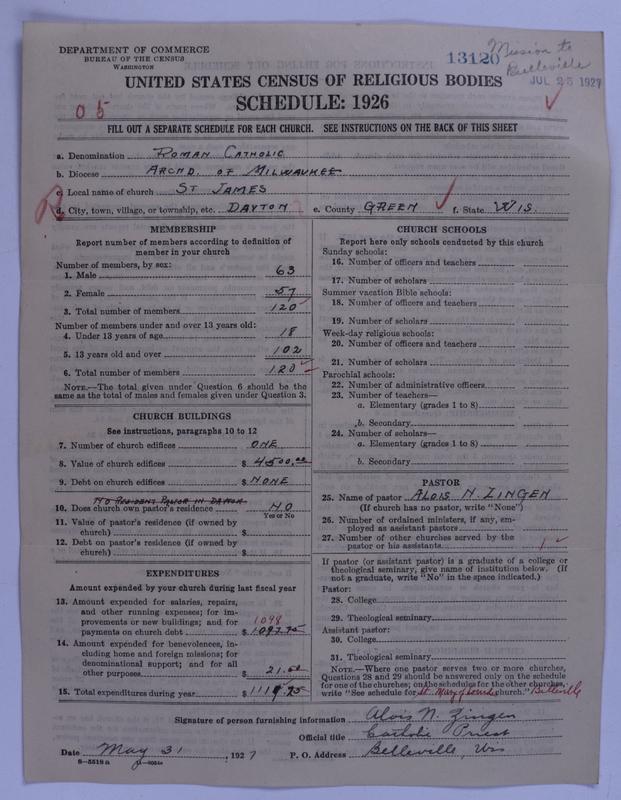 DEPARTMENT OF COMMERCE
BUREAU OF THE CENSUS
WASHINGTON
13120
Mission to
Belleville
JUL 25 1927
UNITED STATES CENSUS OF RELIGIOUS BODIES
SCHEDULE: 1926
05
FILL OUT A SEPARATE SCHEDULE FOR EACH CHURCH. SEE INSTRUCTIONS ON THE BACK OF THIS SHEET
a. Denomination ROMAN CATHOLIC
b. Diocese ARCHD. OF MILWAUKEE
c. Local name of church ST JAMES
R
d. City, town, village, or township, etc. DAYTON e. County GREEN f. State WIS.
MEMBERSHIP
Report number of members according to definition of
member in your church
Number of members, by sex:
1. Male 63
2. Female 57
3. Total number of members 120
Number of members under and over 13 years old:
4. Under 13 years of age 18
5. 13 years old and over 102
6. Total number of members 120
NOTE.—The total given under Question 6 should be the
same as the total of males and females given under Question 3.
CHURCH BUILDINGS
See instructions, paragraphs 10 to 12
7. Number of church edifices ONE
8. Value of church edifices $ 4500.00
9. Debt on church edifices $ NONE
NO RESIDENT PASTOR IN DAYTON
10. Does church own pastor's residence NO
Yes or No
11. Value of pastor's residence (if owned by
church) $
12. Debt on pastor's residence (if owned by
church) $
EXPENDITURES
Amount expended by your church during last fiscal year
13. Amount expended for salaries, repairs,
and other running expenses; for im-
provements or new buildings; and for 1098
payments on church debt $ 1097.75
14. Amount expended for benevolences, in-
cluding home and foreign missions; for
denominational support; and for all
other purposes $ 21.00
15. Total expenditures during year $ 1119.75
CHURCH SCHOOLS
Report here only schools conducted by this church
Sunday schools:
16. Number of officers and teachers
17. Number of scholars
Summer vacation Bible schools:
18. Number of officers and teachers
19. Number of scholars
Week-day religious schools:
20. Number of officers and teachers
21. Number of scholars
Parochial schools:
22. Number of administrative officers
23. Number of teachers—
a. Elementary (grades 1 to 8)
b. Secondary
24. Number of scholars—
a. Elementary (grades 1 to 8)
b. Secondary
PASTOR
25. Name of pastor ALOIS N. ZINGEN
(If church has no pastor, write "None")
26. Number of ordained ministers, if any, em-
ployed as assistant pastors
27. Number of other churches served by the
pastor or his assistants 1
If pastor (or assistant pastor) is a graduate of a college or
theological seminary, give name of institution below. (If
not a graduate, write "No" in the space indicated.)
Pastor:
28. College
29. Theological seminary
Assistant pastor:
30. College
31. Theological seminary
NOTE.—Where one pastor serves two or more churches,
Questions 28 and 29 should be answered only on the schedule
for one of the churches; on the schedules for the other churches,
write "See schedule for St. Mary of Lourdes church." Belleville
Signature of person furnishing information Alois N. Zingen
Official title Catholic Priest
Date May 31, 1927 P. O. Address Belleville, Wis
8—5518a